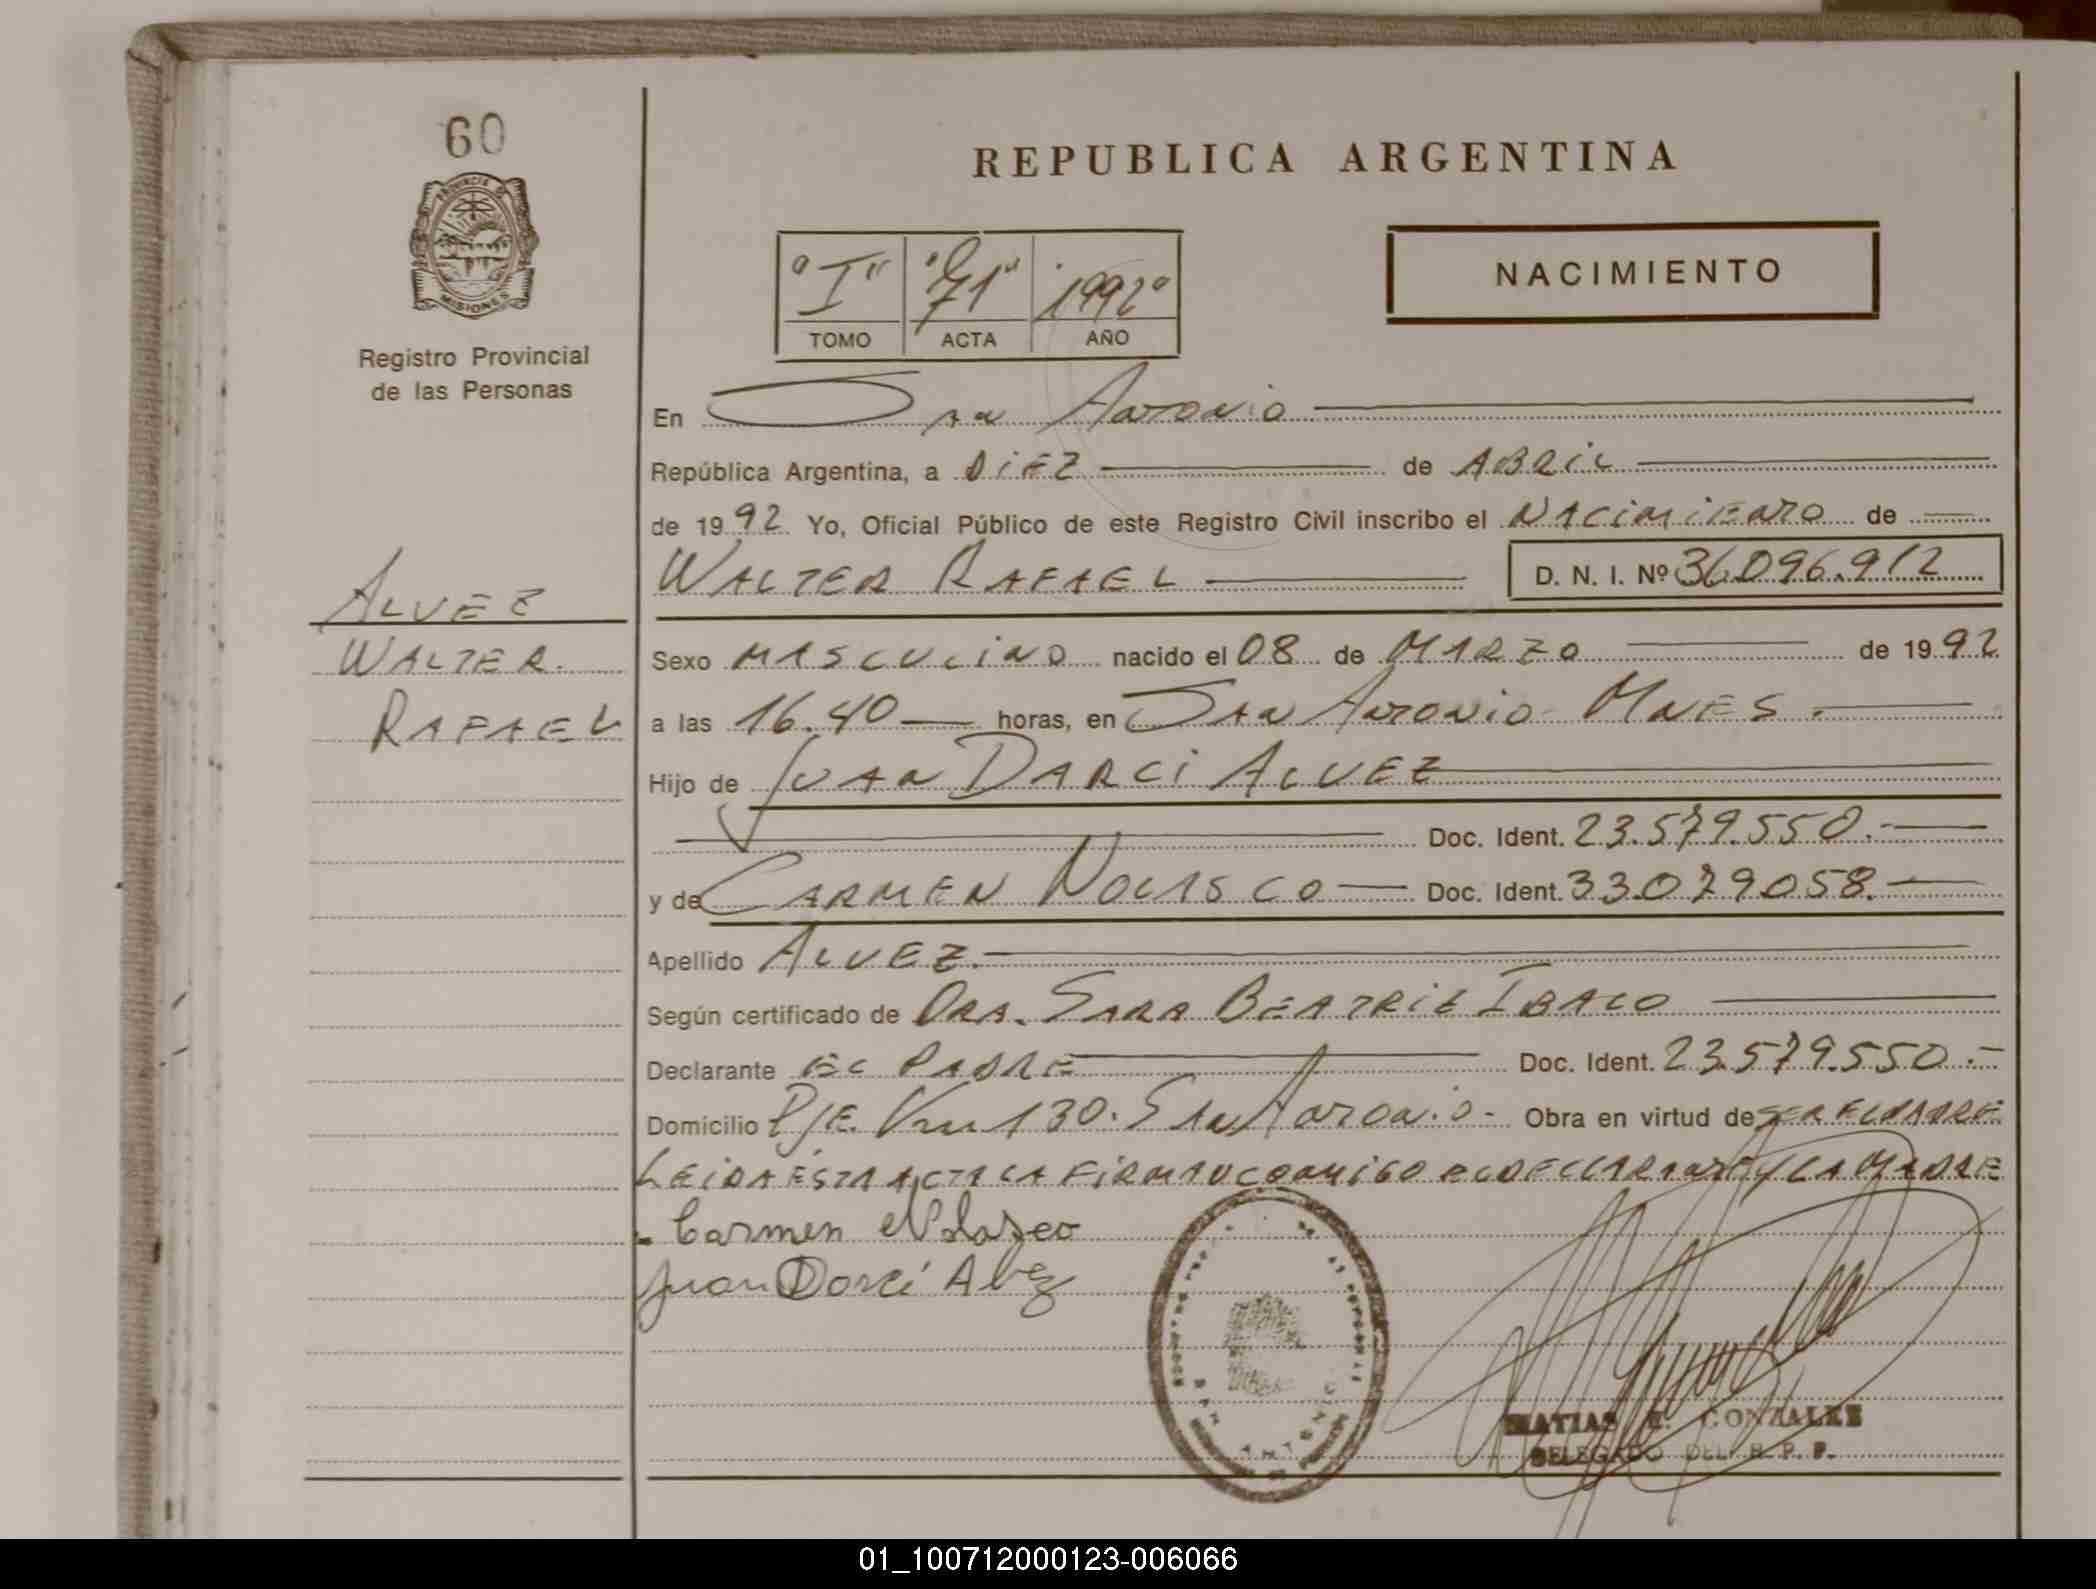 60
PROVINCIA DE
MISIONES
Registro Provincial
de las Personas
REPUBLICA ARGENTINA
"I" "71" "1992"
TOMO ACTA AÑO
NACIMIENTO
En San Antonio
República Argentina, a DIEZ de ABRIL
de 1992 Yo, Oficial Público de este Registro Civil inscribo el NACIMIENTO de
WALTER RAFAEL D. N. I. Nº 36.096.912
ALVEZ
WALTER
RAFAEL
Sexo MASCULINO nacido el 08 de MARZO de 1992
a las 16.40 horas, en SAN ANTONIO MNES.
Hijo de JUAN DARCI ALVEZ
Doc. Ident. 23.579.550.-
y de CARMEN NOLASCO Doc. Ident. 33.079.058.-
Apellido ALVEZ.
Según certificado de DRA. SARA BEATRIZ
Declarante EL PADRE Doc. Ident. 23.579.550.-
Domicilio PJE. Km 130. SAN ANTONIO - Obra en virtud de SER EL PADRE
LEIDA ESTA ACTA LA FIRMAN CONMIGO EL DECLARANTE Y LA MADRE
- Carmen Nolasco
Juan Darcí Alvez
SAN ANTONIO
MATIAS E. GONZALEZ
DELEGADO DEL R. P. P.
01_100712000123-006066